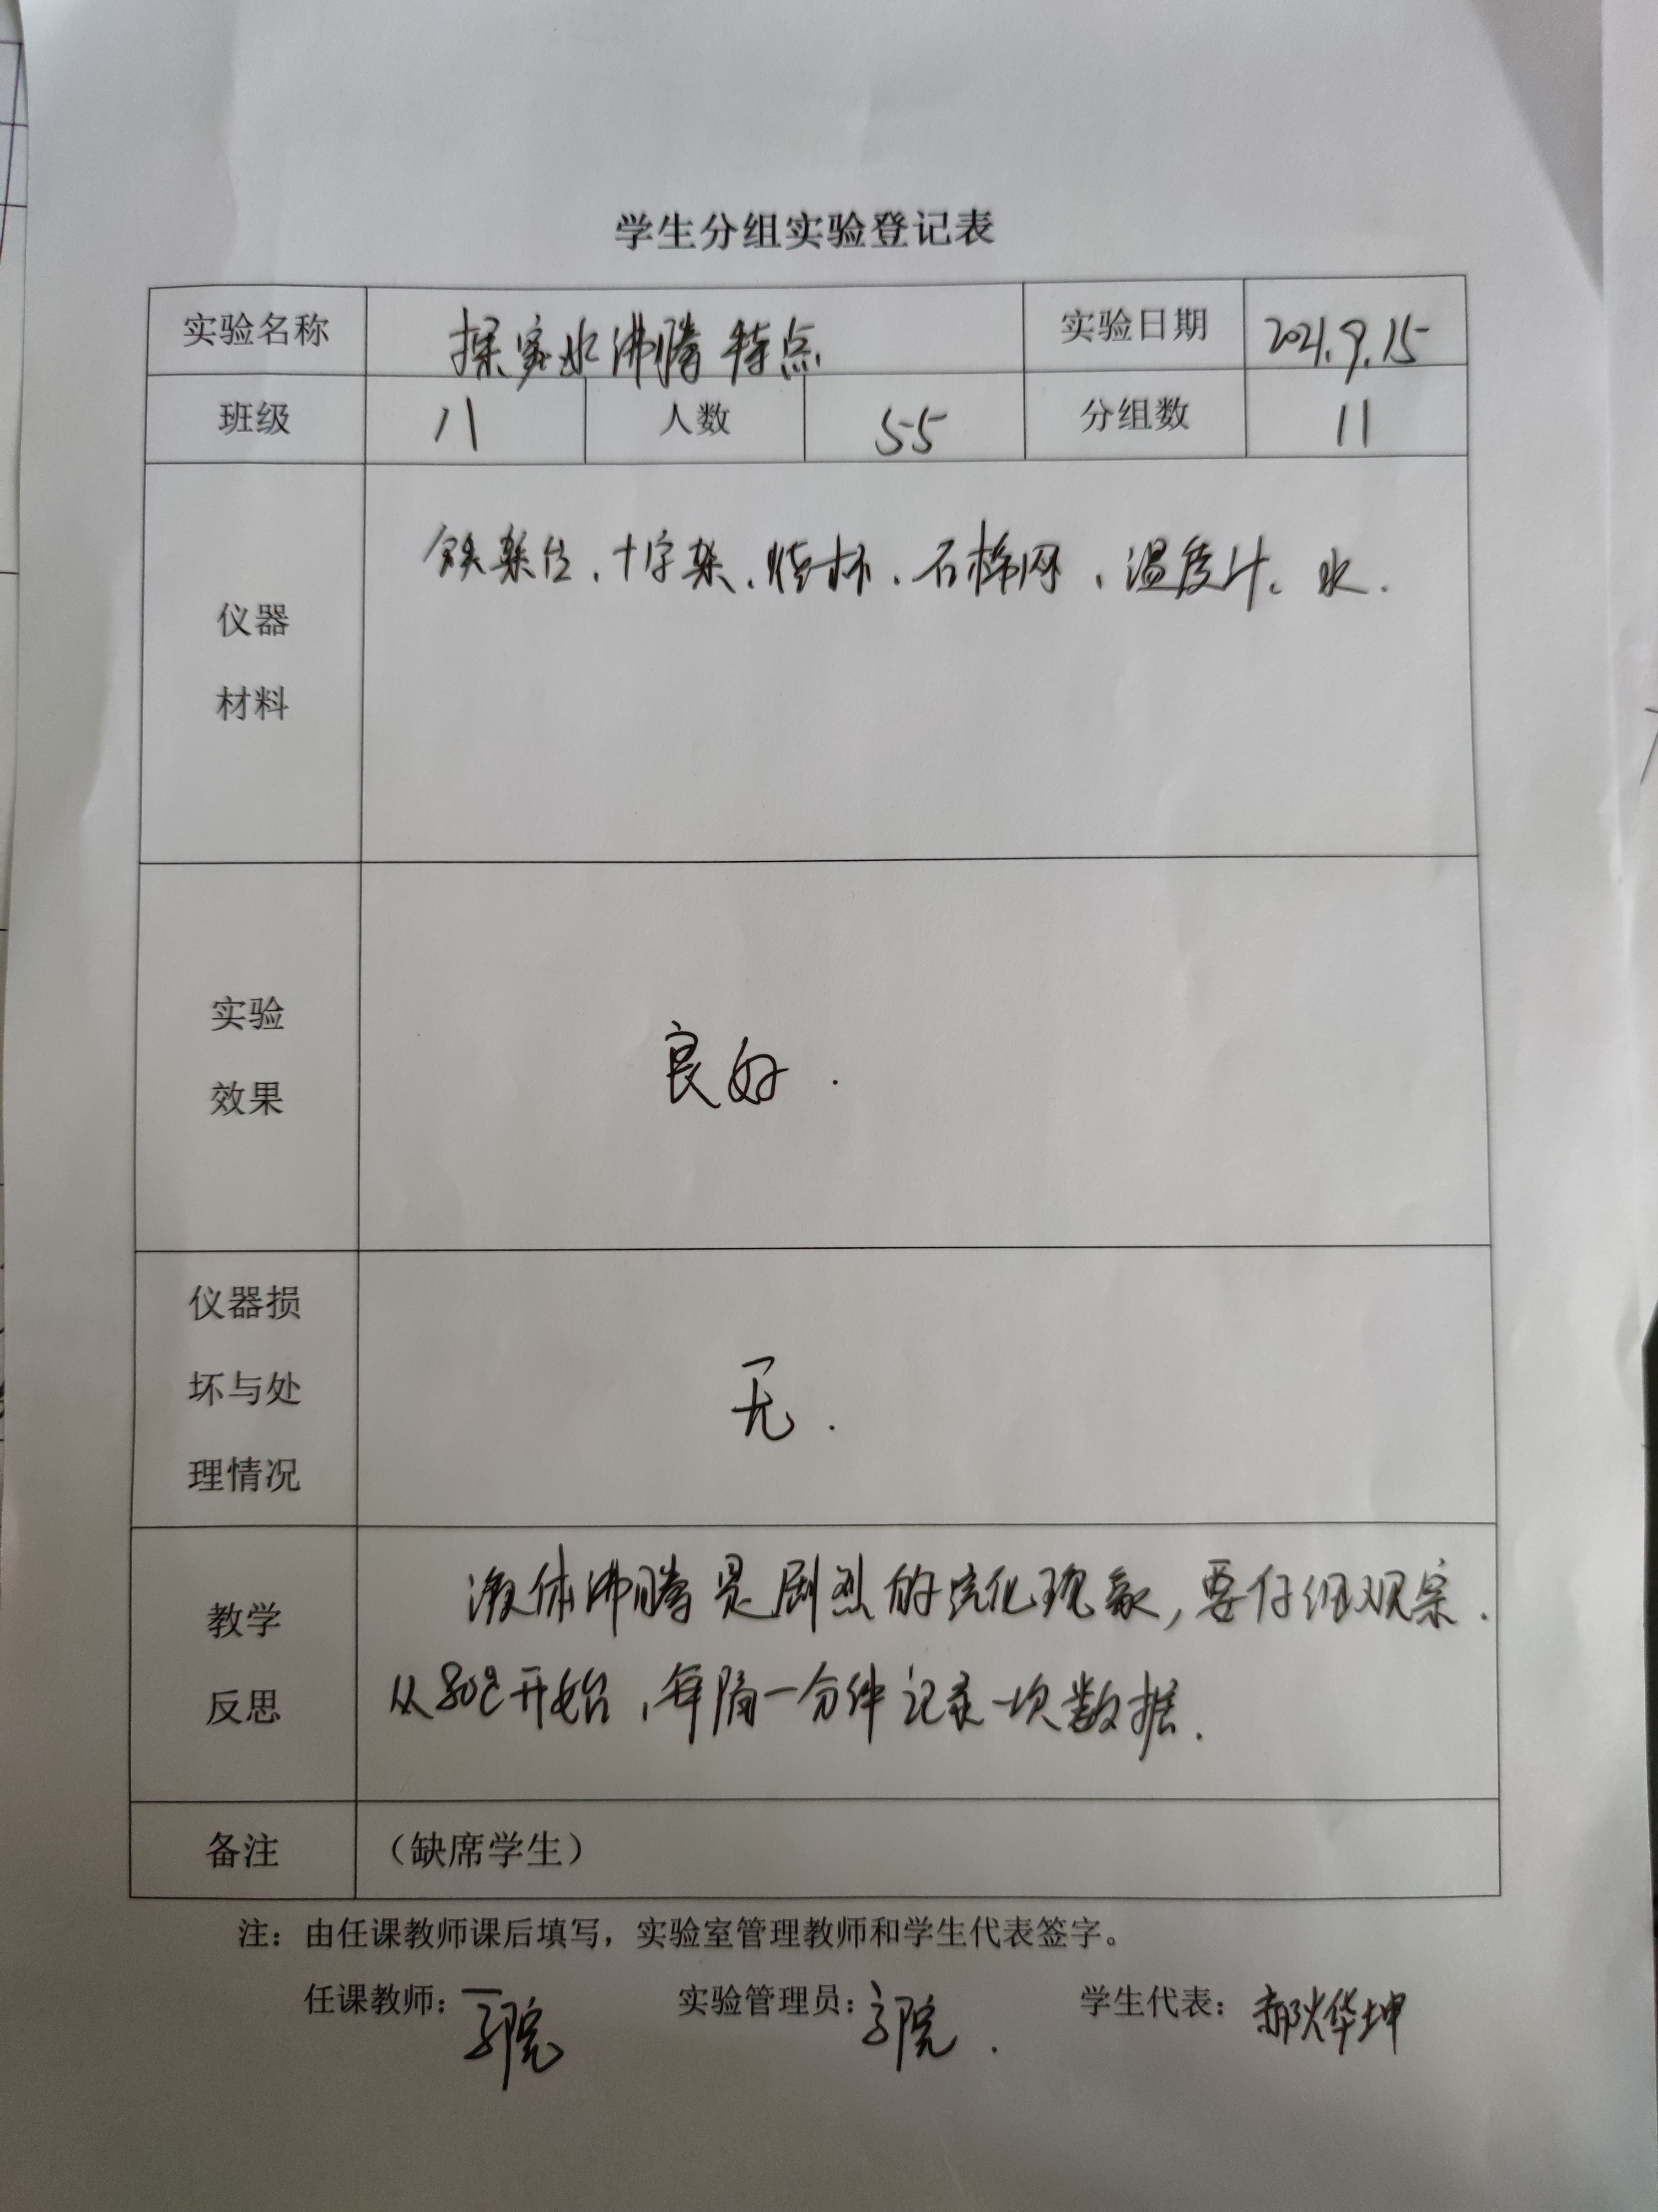 学生分组实验登记表
实验名称 探究水沸腾特点 实验日期 2021.9.15
班级 八 人数 55 分组数 11
铁架台、十字架、烧杯、石棉网、温度计、水.
仪器
材料
实验
良好.
效果
仪器损
坏与处
无.
理情况
液体沸腾是剧烈的汽化现象,要仔细观察.
教学
反思
从80℃开始,每隔一分钟记录一次数据.
备注 (缺席学生)
注:由任课教师课后填写,实验室管理教师和学生代表签字。
任课教师: 实验管理员: 学生代表: